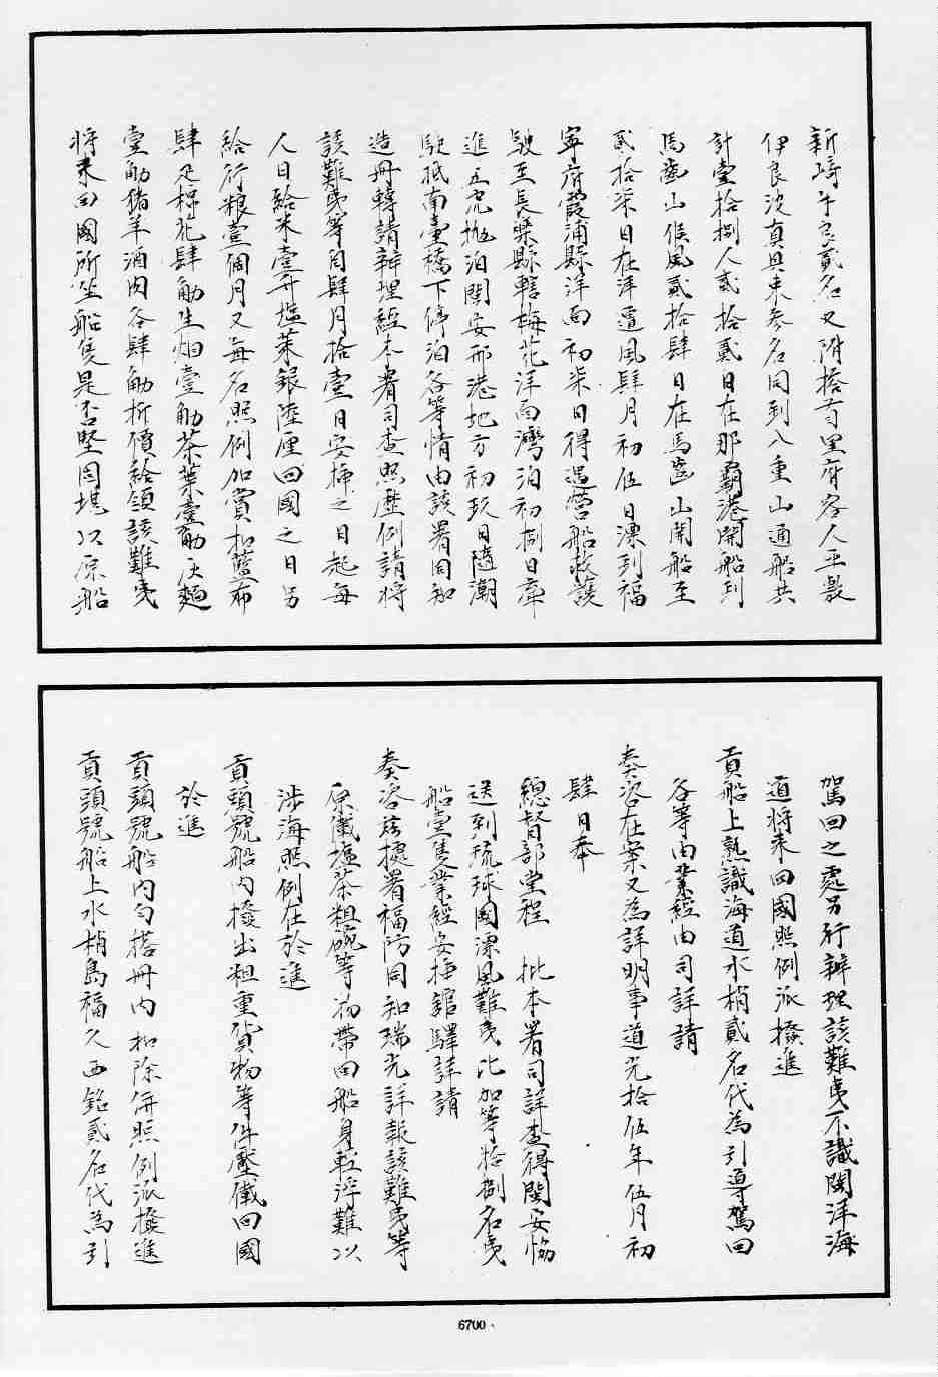 新崎牛良貳名又附搭首里府客人平敷
伊良波真與末參名同到八重山通船共
計壹拾捌人貳拾貳日在那霸港開船到
馬齒山候風貳拾肆日在馬齒山開船至
貳拾柒日在洋遭風肆月初伍日漂到福
寧府霞浦縣洋面初柒日得遇營船救護
駛至長樂縣轄梅花洋面灣泊初捌日牽
進五虎拋泊閩安邢港地方初玖日隨潮
駛抵南臺橋下停泊各等情由該署同知
造冊轉請辦理經本署司查照歷例請將
該難夷等自肆月拾壹日安插之日起每
人日給米壹升塩菜銀陸厘回國之日另
給行粮壹個月又每名照例加賞布藍布
肆疋棉花肆觔生烟壹觔茶葉壹觔灰麵
壹觔猪羊酒肉各肆觔折價給領該難夷
將來回國所坐船隻是否堅固堪以原船
駕回之處另行辦理該難夷不識閩洋海
道將來回國照例派撥進
貢船上熟識海道水梢貳名代為引導駕回
各等由業經由司詳請
奏咨在案又為詳明事道光拾伍年伍月初
肆日奉
總督部堂程 批本署司詳查得閩安協
送到琉球國漂風難夷比加等拾捌名夷
船壹隻業經安插館驛詳請
奏咨茲據署福防同知瑞光詳報該難夷等
原儎塩茶粗碗等物帶回船身輕浮難以
涉海照例在於進
貢頭號船內撥出粗重貨物等件壓儎回國
於進
貢頭號船內勻搭冊內扣除併照例派撥進
貢頭號船上水梢島福久西銘貳名代為引
6700